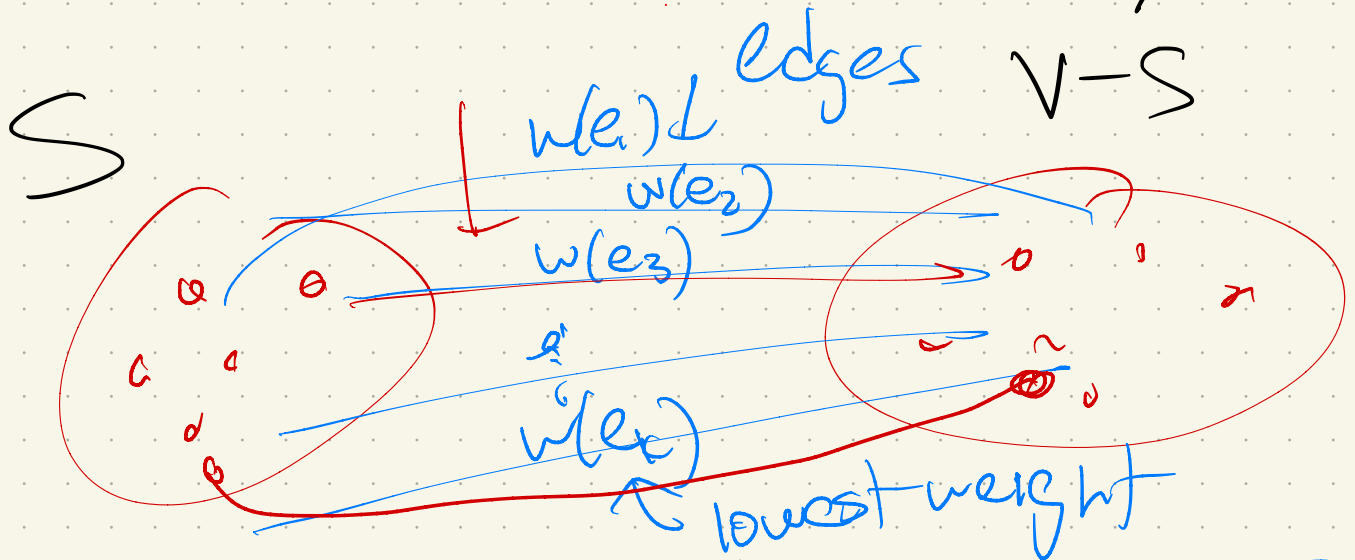 edges
V-S
S
w(e₁)
w(e₂)
w(e₃)
w(eₖ)
lowest weight